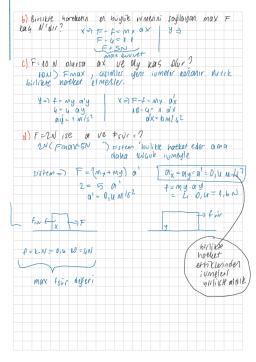 b) Birlikte hareketin en büyük ivmesini sağlayan max F
kaç N'dur?
x → F - f = mx ax
F - 4 = 1.1
F = 5N
max kuvvet
y →
c) F = 10 N olursa ax ve ay kaç olur?
10N > Fmax, cisimler yere ivmeler kazanır. Artık
birlikte hareket etmezler.
y → f = my ay
4 = 4 ay
ay = 1 m/s²
x → F - f = mx a'x
10 - 4 = 1 a'x
ax = 6 m/s²
d) F = 2N ise a ve fsür = ?
2N < Fmax = 5N } sistem birlikte hareket eder ama
daha küçük ivmeyle
sistem → F = (mx + my) a'
2 = 5 a'
a' = 0,4 m/s²
ax = ay = a' = 0,4 m/s²
f = my ay
= 4. 0,4 = 1,6 N
x
F
y
f = k.N =
max fsür değeri
birlikte
hareket
ettiklerinden
ivmeleri